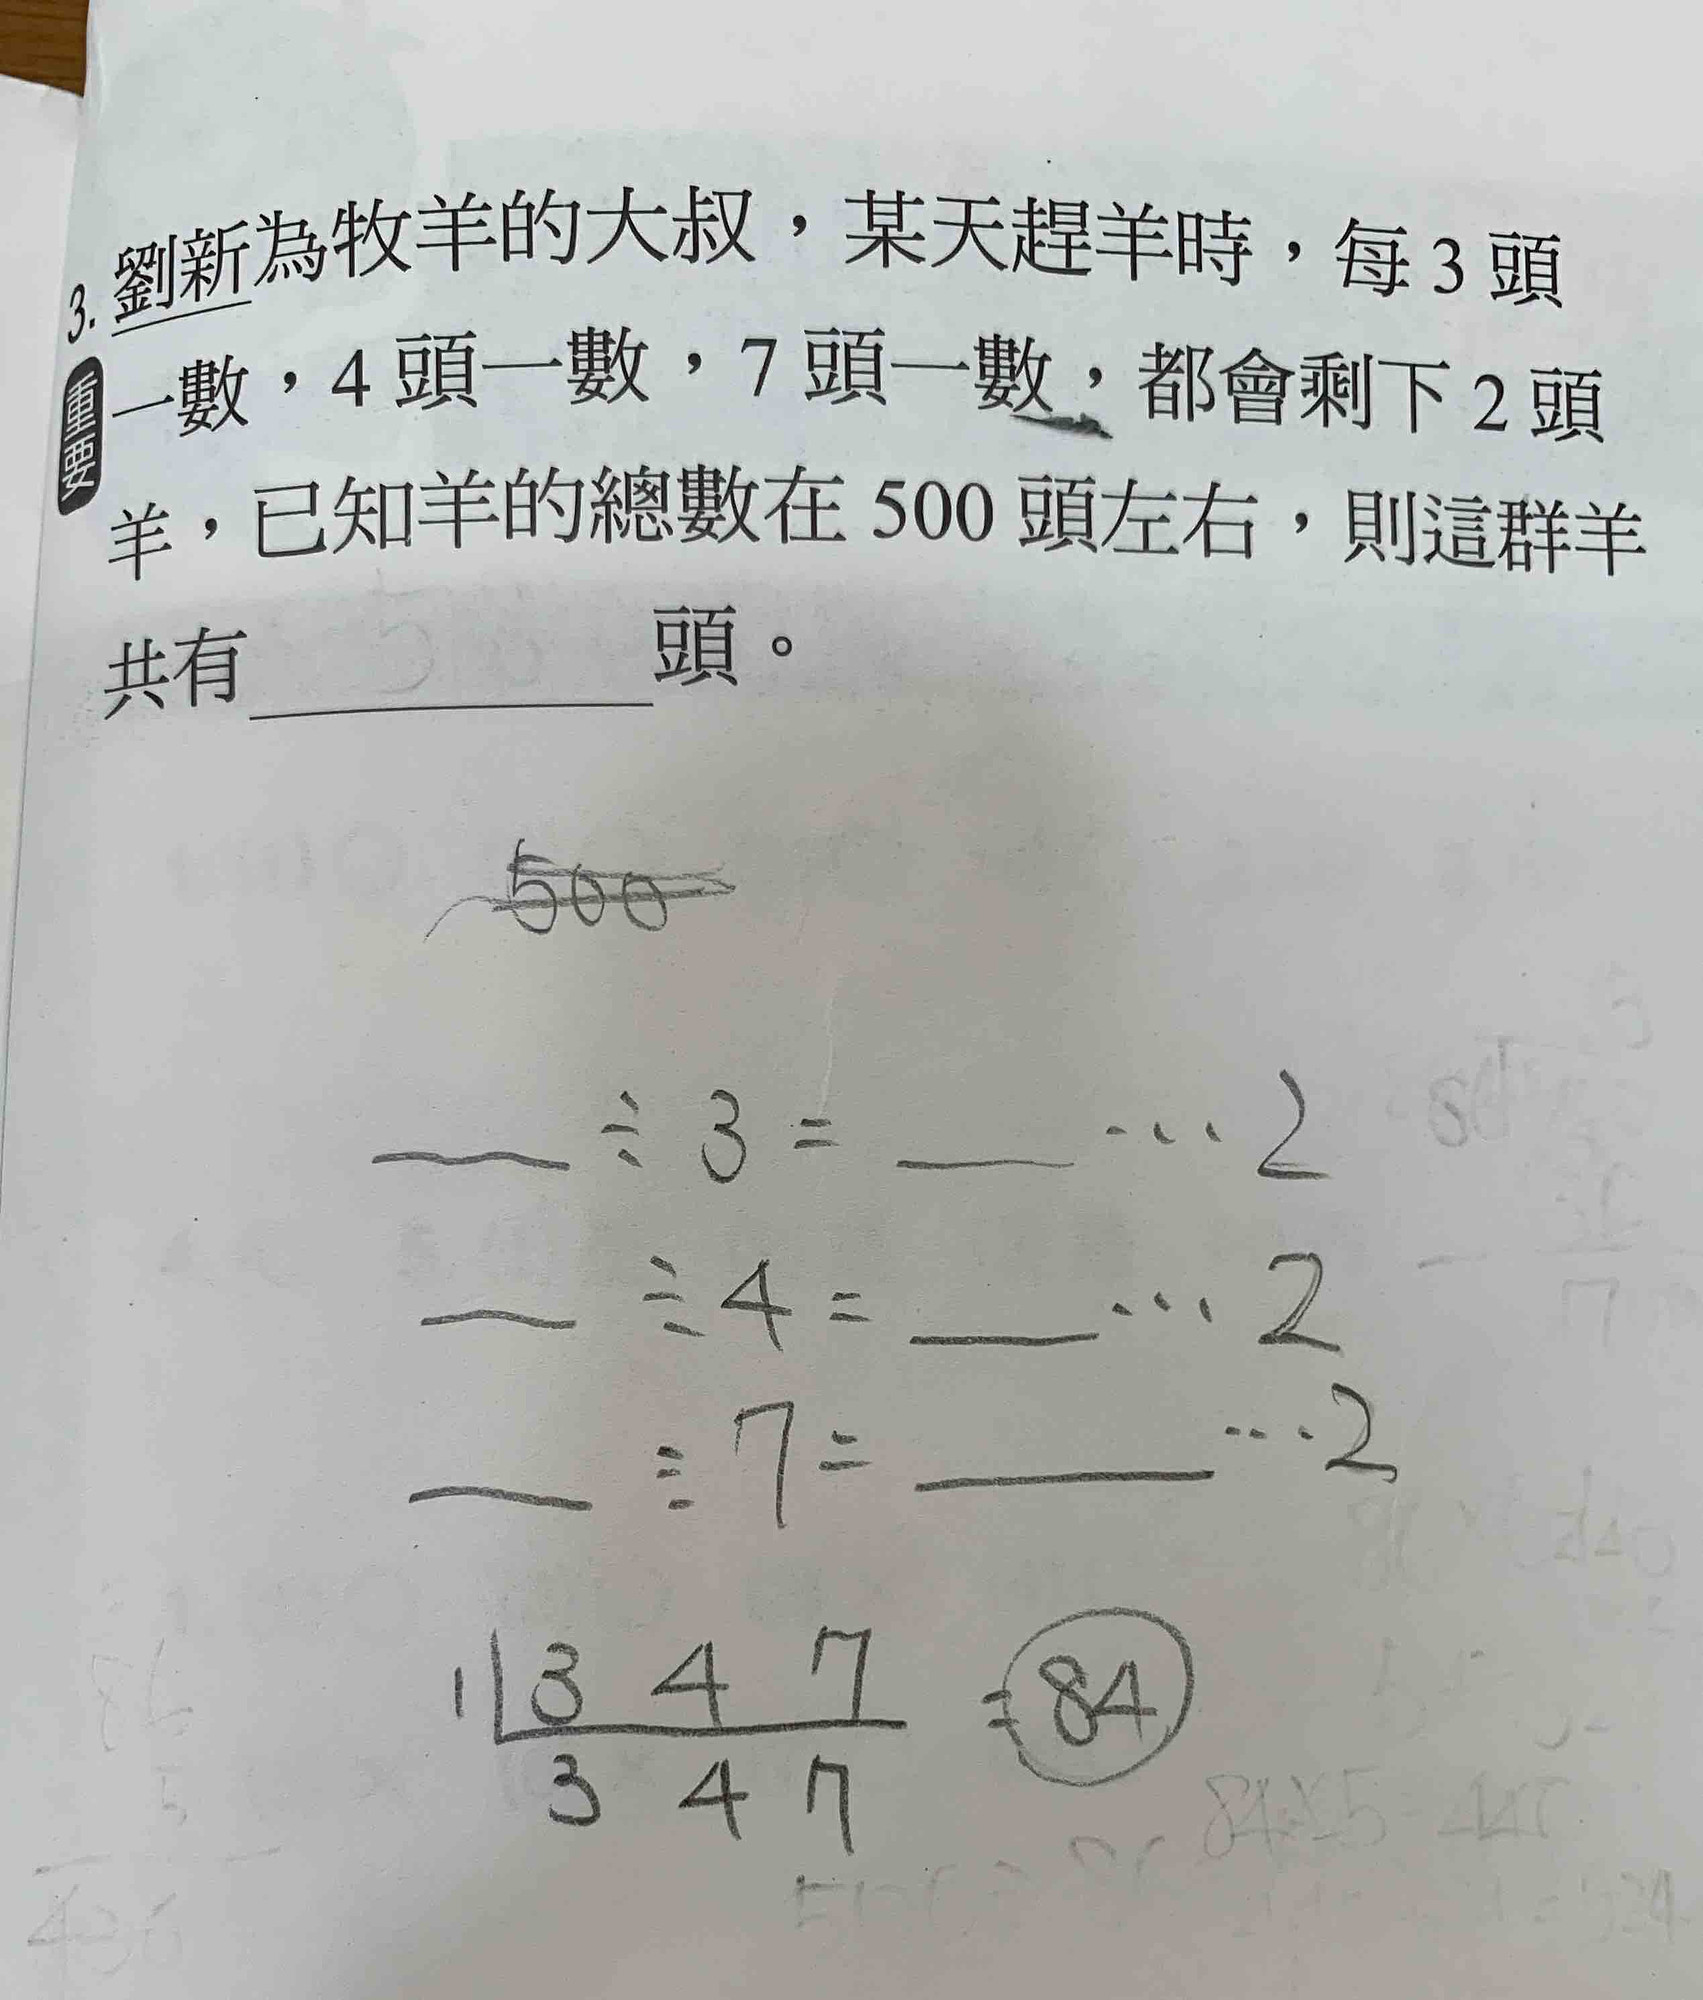 3. 劉新為牧羊的大叔，某天趕羊時，每3頭
重要
一數，4頭一數，7頭一數，都會剩下2頭
羊，已知羊的總數在500頭左右，則這群羊
共有________頭。
500
__÷3=__…2
__÷4=__…2
__÷7=__…2
1 3 4 7 =84
3 4 7